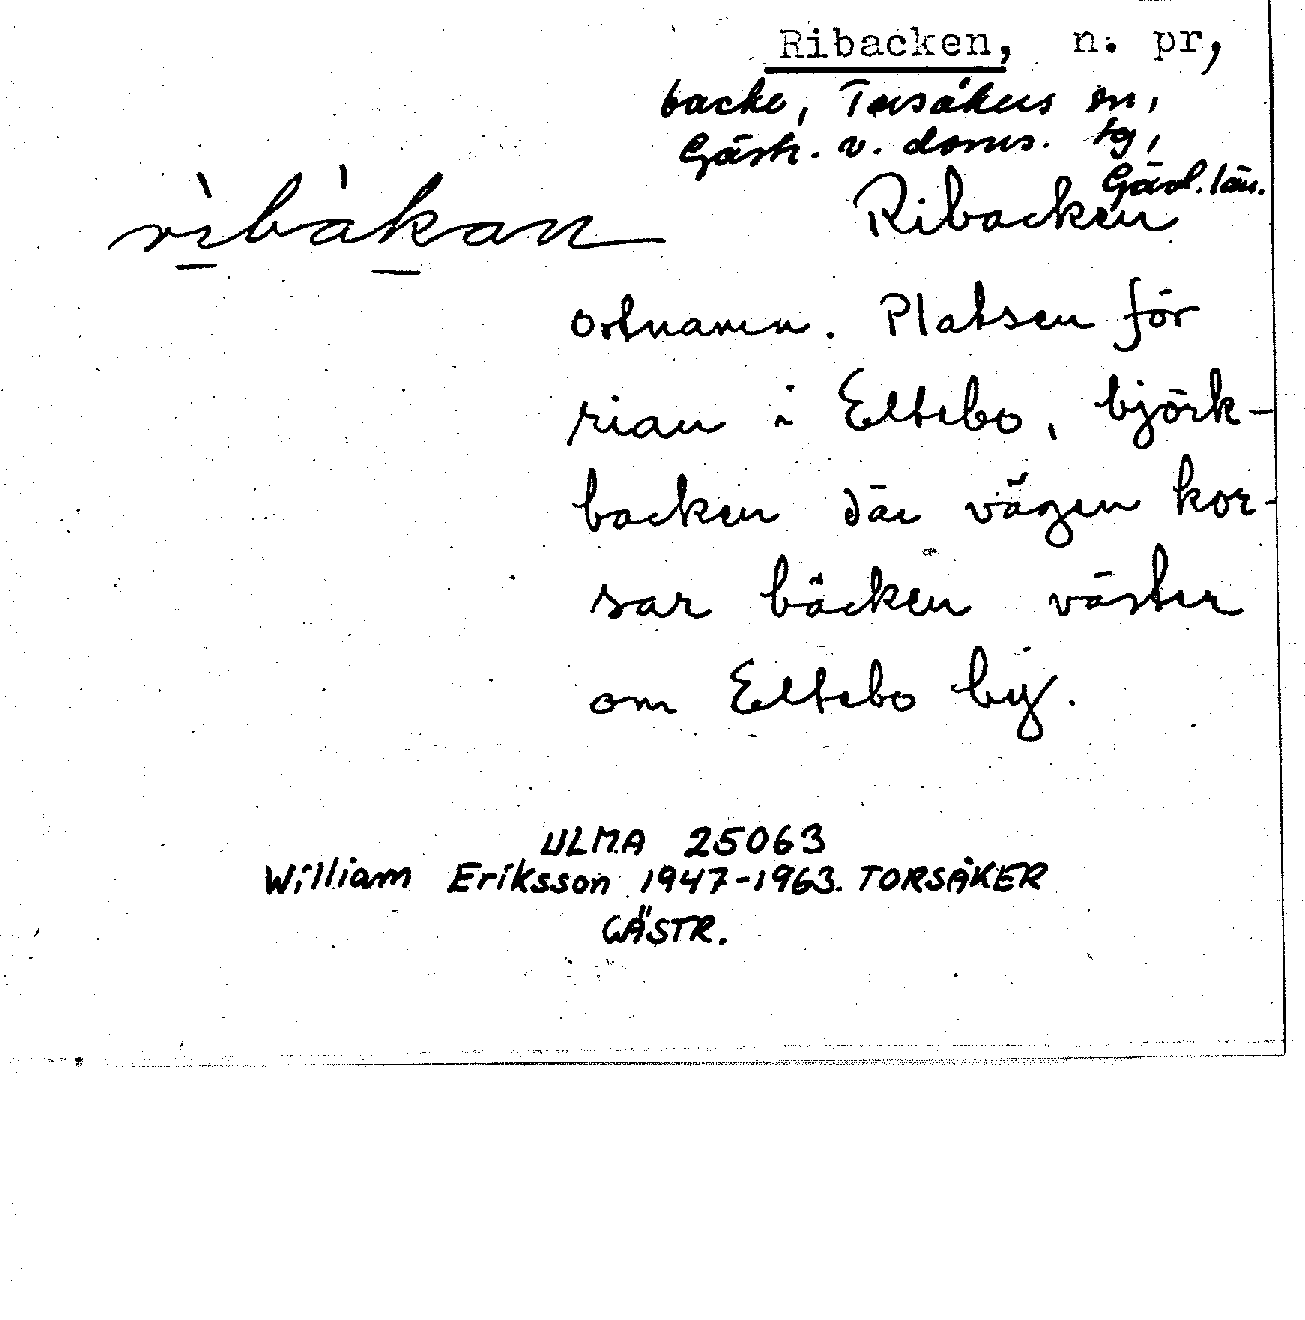 Ribacken, n. pr,
backe, Torsåkers sn,
Gästr. v. doms. tg,
Gävl. län.
rìbákan Ribacken
ortnamn. Platsen för
rian i Eltebo, björk-
backen där vägen kor-
sar bäcken väster
om Eltebo by.
ULMA 25063
William Eriksson 1947-1963. TORSÅKER
GÄSTR.